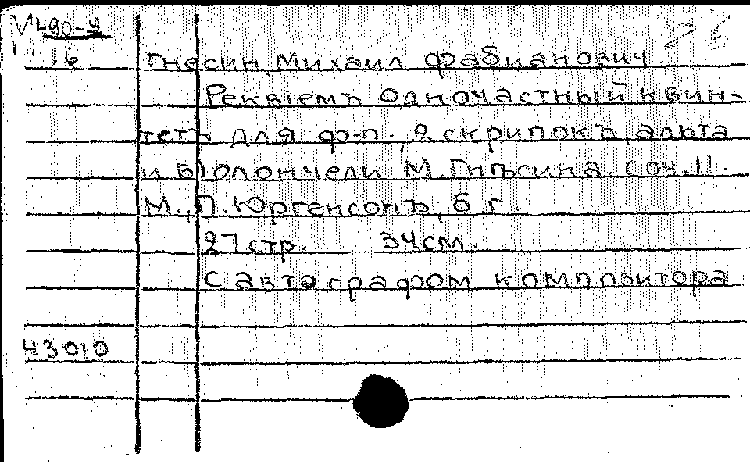 V 490-4
16 Гнесин, Михаил Фабианович
Реквiемъ одночастный квин-
тетъ для ф-п., 2 скрипокъ, альта
и вiолончели М. Гнѣсина. соч. 11.
М., П. Юргенсонъ, б г
27 стр. 34 см.
С автографом композитора
43010